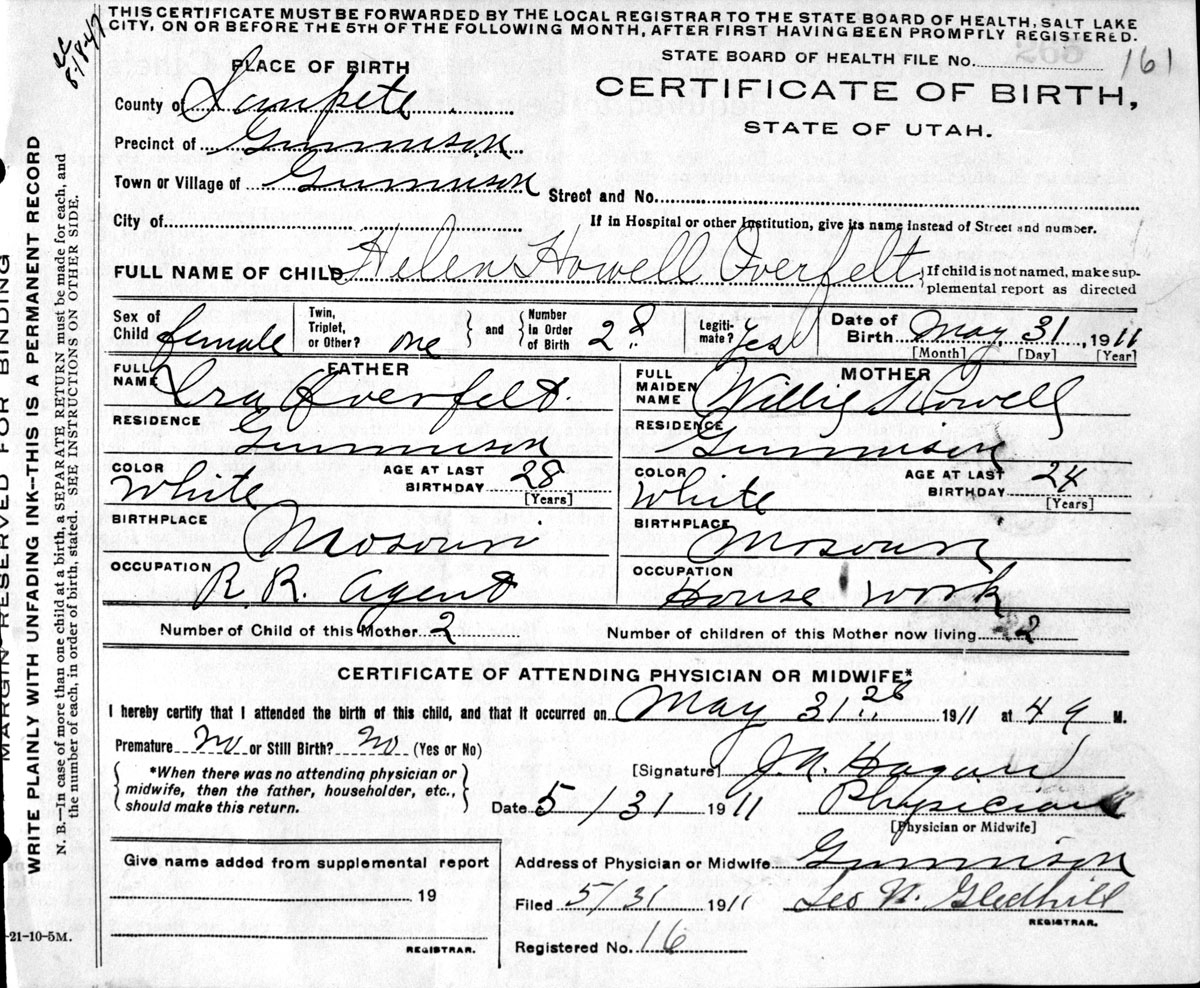 THIS CERTIFICATE MUST BE FORWARDED BY THE LOCAL REGISTRAR TO THE STATE BOARD OF HEALTH, SALT LAKE
CITY, ON OR BEFORE THE 5TH OF THE FOLLOWING MONTH, AFTER FIRST HAVING BEEN PROMPTLY REGISTERED.
STATE BOARD OF HEALTH FILE No. 161
PLACE OF BIRTH
CERTIFICATE OF BIRTH,
STATE OF UTAH.
County of Sanpete
Precinct of Gunnison
Town or Village of Gunnison
Street and No.
City of
If in Hospital or other Institution, give its name instead of Street and number.
FULL NAME OF CHILD Helen Howell Overfelt
If child is not named, make supplemental report as directed
Sex of Child female Twin, Triplet, or Other? one and Number in Order of Birth 2 Legiti-mate? Yes Date of Birth May 31, 1911
[Month] [Day] [Year]
FATHER
FULL NAME Ira Overfelt
MOTHER
FULL MAIDEN NAME Willie Howell
RESIDENCE Gunnison
RESIDENCE Gunnison
COLOR White AGE AT LAST BIRTHDAY 28 [Years]
COLOR White AGE AT LAST BIRTHDAY 24 [Years]
BIRTHPLACE Mosouri
BIRTHPLACE Mosouri
OCCUPATION R.R. agent
OCCUPATION House work
Number of Child of this Mother 2 Number of children of this Mother now living 2
CERTIFICATE OF ATTENDING PHYSICIAN OR MIDWIFE*
I hereby certify that I attended the birth of this child, and that it occurred on May 31 1911 at 4 M.
Premature no or Still Birth? no (Yes or No)
*When there was no attending physician or
midwife, then the father, householder, etc.,
should make this return.
[Signature] Hagan
Date 5/31 1911 Physician
[Physician or Midwife]
Give name added from supplemental report
19
REGISTRAR.
Address of Physician or Midwife Gunnison
Filed 5/31 1911 Gledhill
REGISTRAR.
Registered No. 16
-21-10-5M.
MARGIN RESERVED FOR BINDING
WRITE PLAINLY WITH UNFADING INK--THIS IS A PERMANENT RECORD
N. B.—In case of more than one child at a birth, a SEPARATE RETURN must be made for each, and
the number of each, in order of birth, stated. SEE INSTRUCTIONS ON OTHER SIDE.